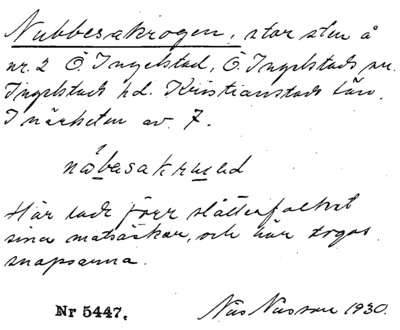 Nubbesakrogen, stor sten å
nr. 2 Ö. Ingelstad, Ö. Ingelstads sn.
Ingelstads hd. Kristianstads län.
I närheten av 7.
Här lade förr slåtterfolket
sina matsäckar, och här togos
snapsarna.
Nr 5447. Nils Nilsson 1930.